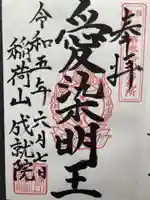 奉拝
愛染明王
令和五年六月七日
稲荷山 成就院